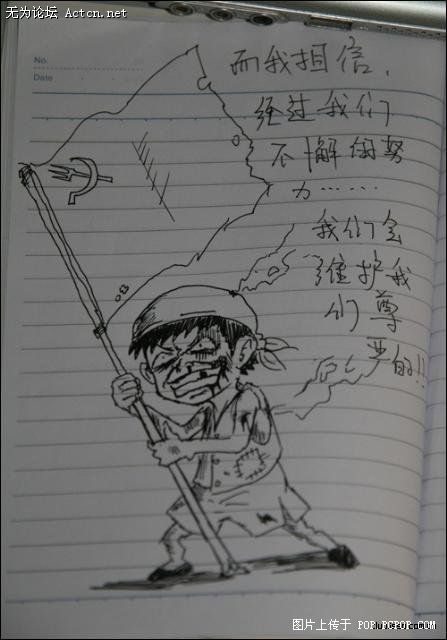 无为论坛 Actcn.net
No.
Date
而我相信,
经过我们
不懈的努
力……
我们会
维护我
们尊
严的!!
图片上传于 POPUPCPOP.COM